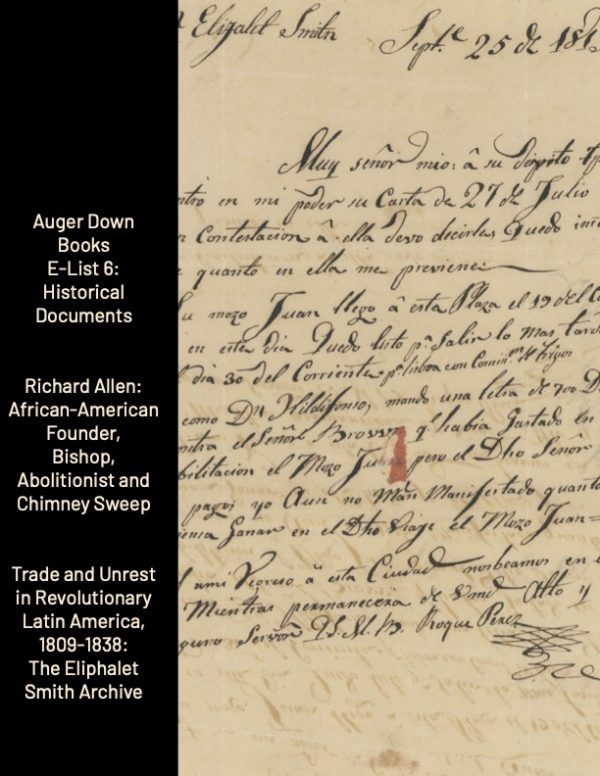 Auger Down
Books
E-List 6:
Historical
Documents
Richard Allen:
African-American
Founder,
Bishop,
Abolitionist and
Chimney Sweep
Trade and Unrest
in Revolutionary
Latin America,
1809-1838:
The Eliphalet
Smith Archive
Elizalet Smith
Sept.e 25 de 181
Muy señor mio: â su
en mi poder su Carta de 27 de Julio
Contestacion â ella devo decirles Quedo
quanto en ella me previene
mozo Juan llego â esta Plaza el 19 del
en este dia Quedo listo pª Salir lo mas
dia 30 del Corriente pª lisboa con trigos
como Dn Ildifonso, mando una letra de 700
el Señor Brovvn qe habia Gastado en
el Mozo pero el Dho Señor
pagos yo Aun no Man Manifestado quanto
Ganar en el Dho Viaje el Mozo Juan=
ami Regreso â esta Ciudad en
Mientras permanecera de Vmd Atto y
Servor Q.S.M.B. Roque Perez